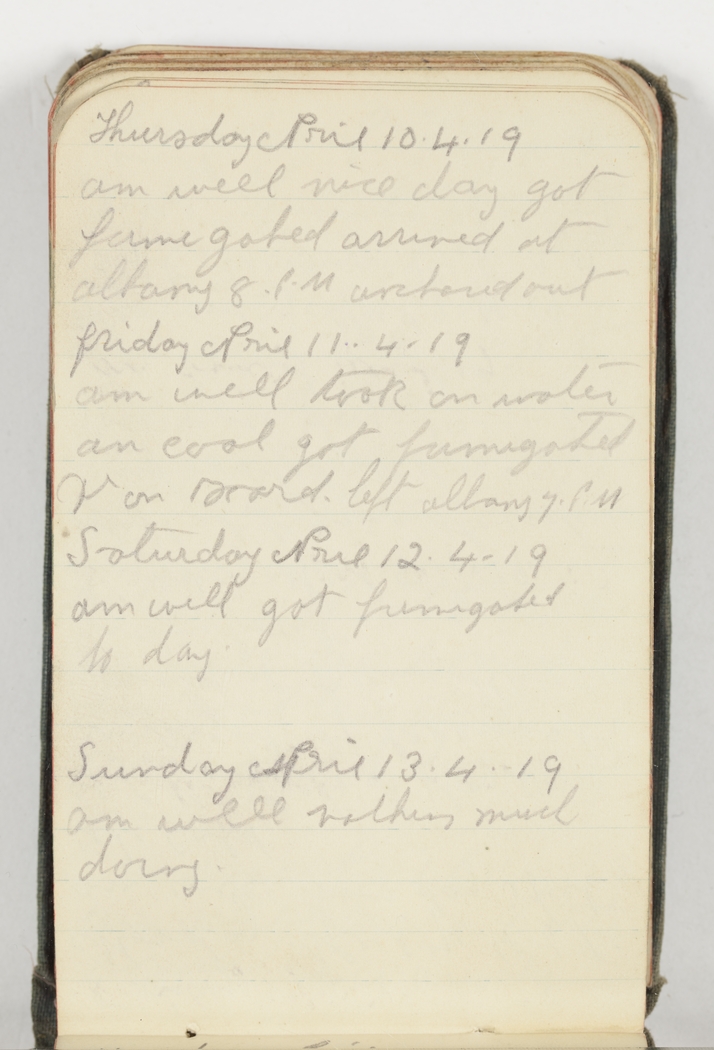 Thursday April 10.4.19
am well nice day got
fumegated arrived at
albany 8.P.M anchored out
friday April 11..4-19
am well took on water
an coal got fumegated
on Board. left albany 7.P.M
Saturday April 12.4-19
am well got fumegated
to day.
Sunday April 13.4.-19
am well nothing much
doing.